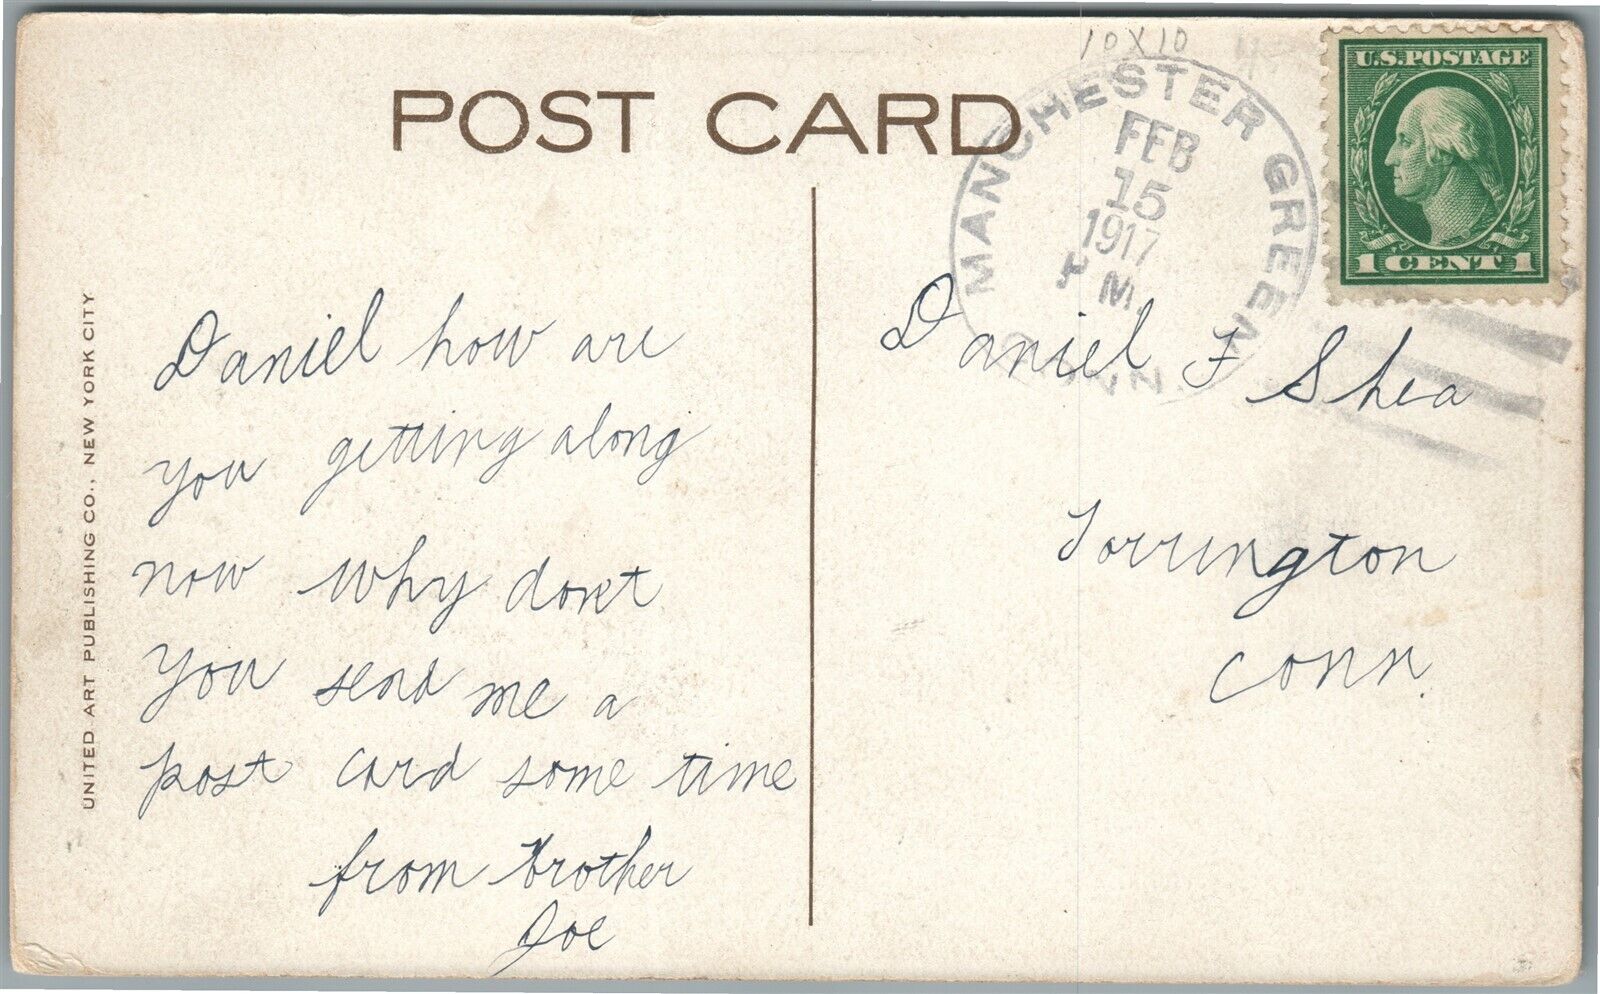 10X10
POST CARD
MANCHESTER GREEN
CONN.
FEB
15
1917
P M.
U.S.POSTAGE
1 CENT 1
Daniel how are
you getting along
now why don't
you send me a
post card some time
from brother
Joe
Daniel F Shea
Torrington
Conn.
UNITED ART PUBLISHING CO., NEW YORK CITY